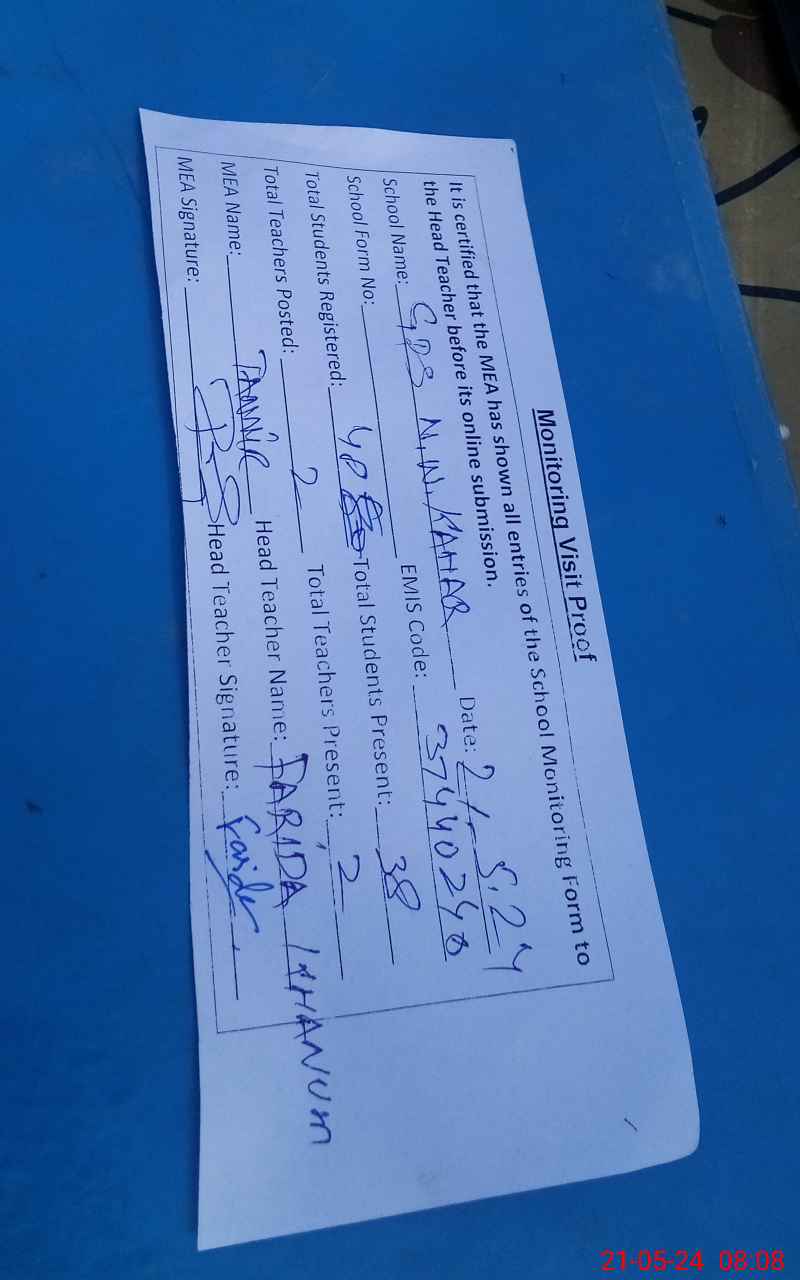 Monitoring Visit Proof
It is certified that the MEA has shown all entries of the School Monitoring Form to
the Head Teacher before its online submission.
School Name: GPS N.W. KAHAR Date: 21-5.24
School Form No: EMIS Code: 37440240
Total Students Registered: 40 Total Students Present: 38
Total Teachers Posted: 2 Total Teachers Present: 2
MEA Name: TAMMIR Head Teacher Name: FARIDA KHANUM
MEA Signature: Head Teacher Signature: Farida
21-05-24 08:08